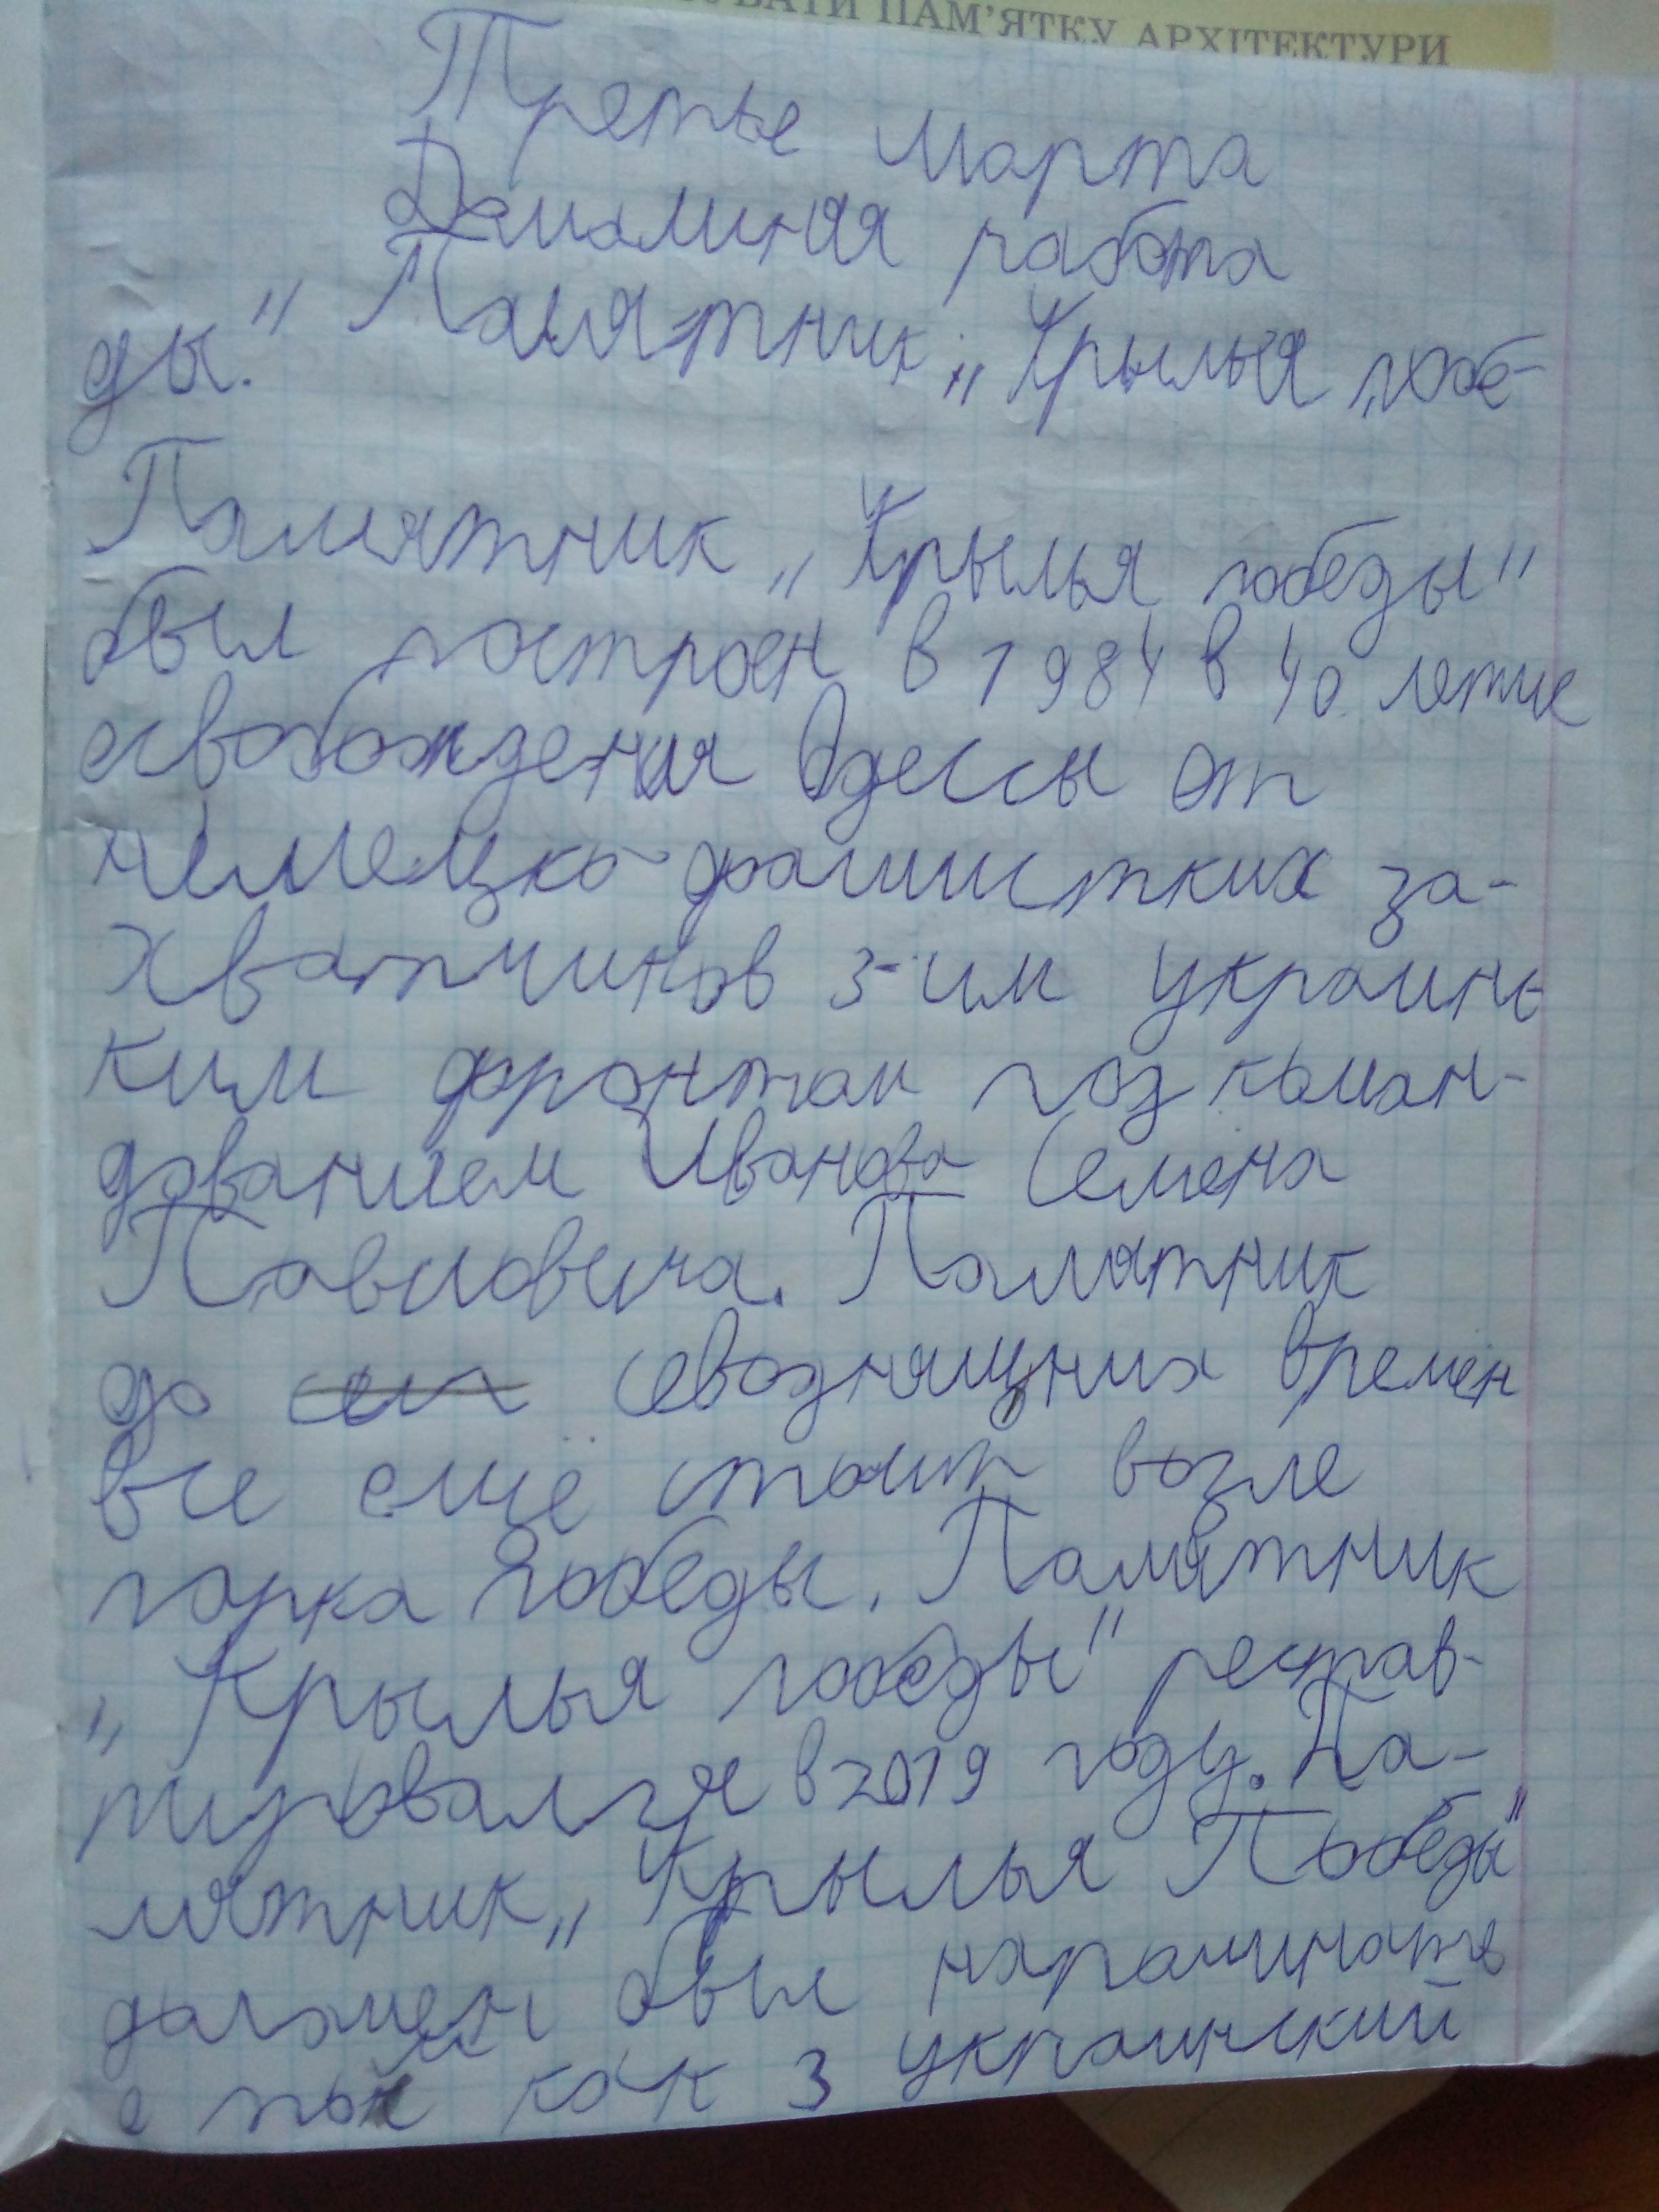 ВАТИ ПАМ'ЯТКУ АРХІТЕКТУРИ
Третье марта
Домашняя работа
Памятник „Крылья побе-
ды."
Памятник „Крылья победы"
был построен в 1984 в 40 летие
освобождения Одессы от
немецко-фашистких за-
хватчинов 3-им украинс
ким фронтом под коман-
дованием Иванова Семёна
Павловича. Памятник
до сводняшних времен
все ещё стоит возле
парка Победы. Памятник
„Крылья победы" рестав-
рировался в 2019 году. Па-
мятник „Крылья Победы"
должен был напоминать
о том как 3 украинский